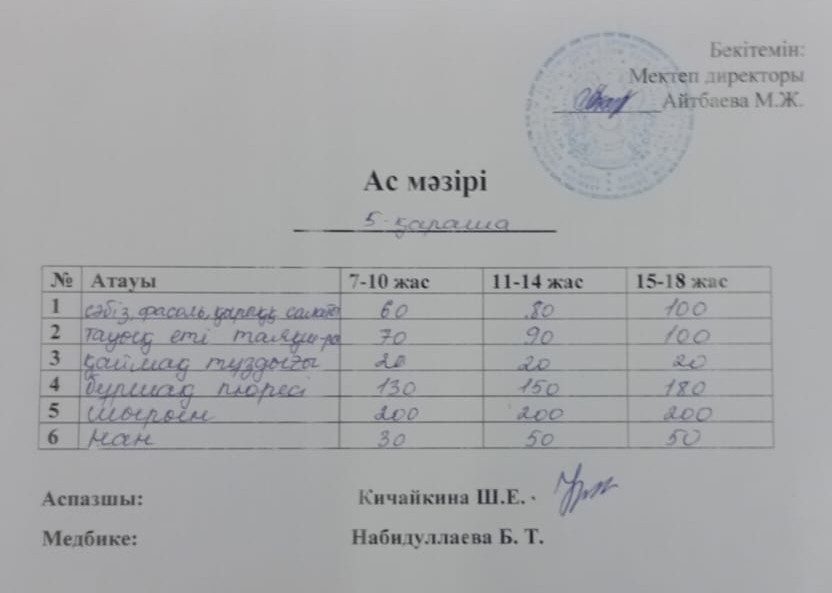 Бекітемін:
Мектеп директоры
Айтбаева М.Ж.
Ас мәзірі
5-қараша
№ Атауы 7-10 жас 11-14 жас 15-18 жас
1 сәбіз, фасоль, салаты 60 80 100
2 тауық еті 70 90 100
3 қаймақ тұздығы 20 20 20
4 бұршақ пюресі 130 150 180
5 шырын 200 200 200
6 нан 30 50 50
Аспазшы: Кичайкина Ш.Е.
Медбике: Набидуллаева Б. Т.